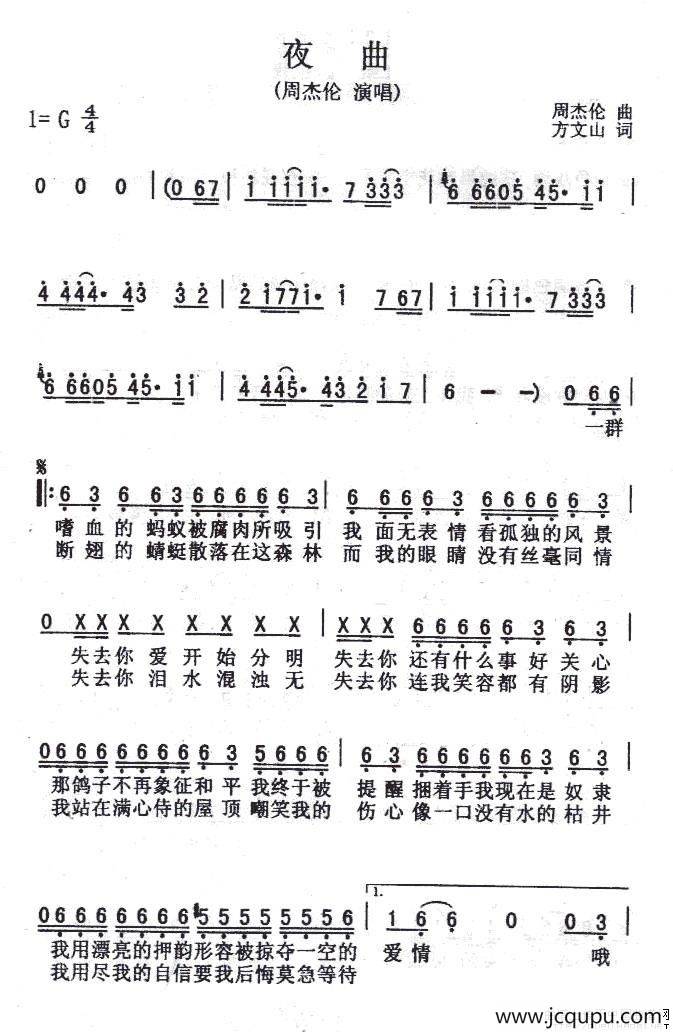 夜 曲
(周杰伦 演唱)
1=G 4/4
周杰伦 曲
方文山 词
0 0 0 | (0 67 | i iiii· 7 333 | 6 6605 45· ii |
4 444· 43 32 | 2 i77i· i 7 67 | i iiii· 7 333 |
6 6605 45· ii | 4 445· 43 2 i 7 | 6 - -) 0 6 6 |
一群
𝄋
‖: 6 3 6 63 6666 63 | 6 3 6 66 6666 63 |
嗜血的蚂蚁被腐肉所吸引 我面无表情看孤独的风景
断翅的蜻蜓散落在这森林 而我的眼睛没有丝毫同情
0 XX X X X X X | XXX 6666 6 3 6 3 |
失去你爱开始分明 失去你还有什么事好关心
失去你泪水混浊无 失去你连我笑容都有阴影
0666 6666 6 3 5666 | 6 3 6666 6666 6 3 |
那鸽子不再象征和平我终于被 提醒捆着手我现在是奴隶
我站在满心侍的屋顶嘲笑我的 伤心像一口没有水的枯井
0666 6666 5555 5556 | 1. 1 6 6 0 0 3 |
我用漂亮的押韵形容被掠夺一空的 爱情 哦
我用尽我的自信要我后悔莫急等待
www.jcqupu.com